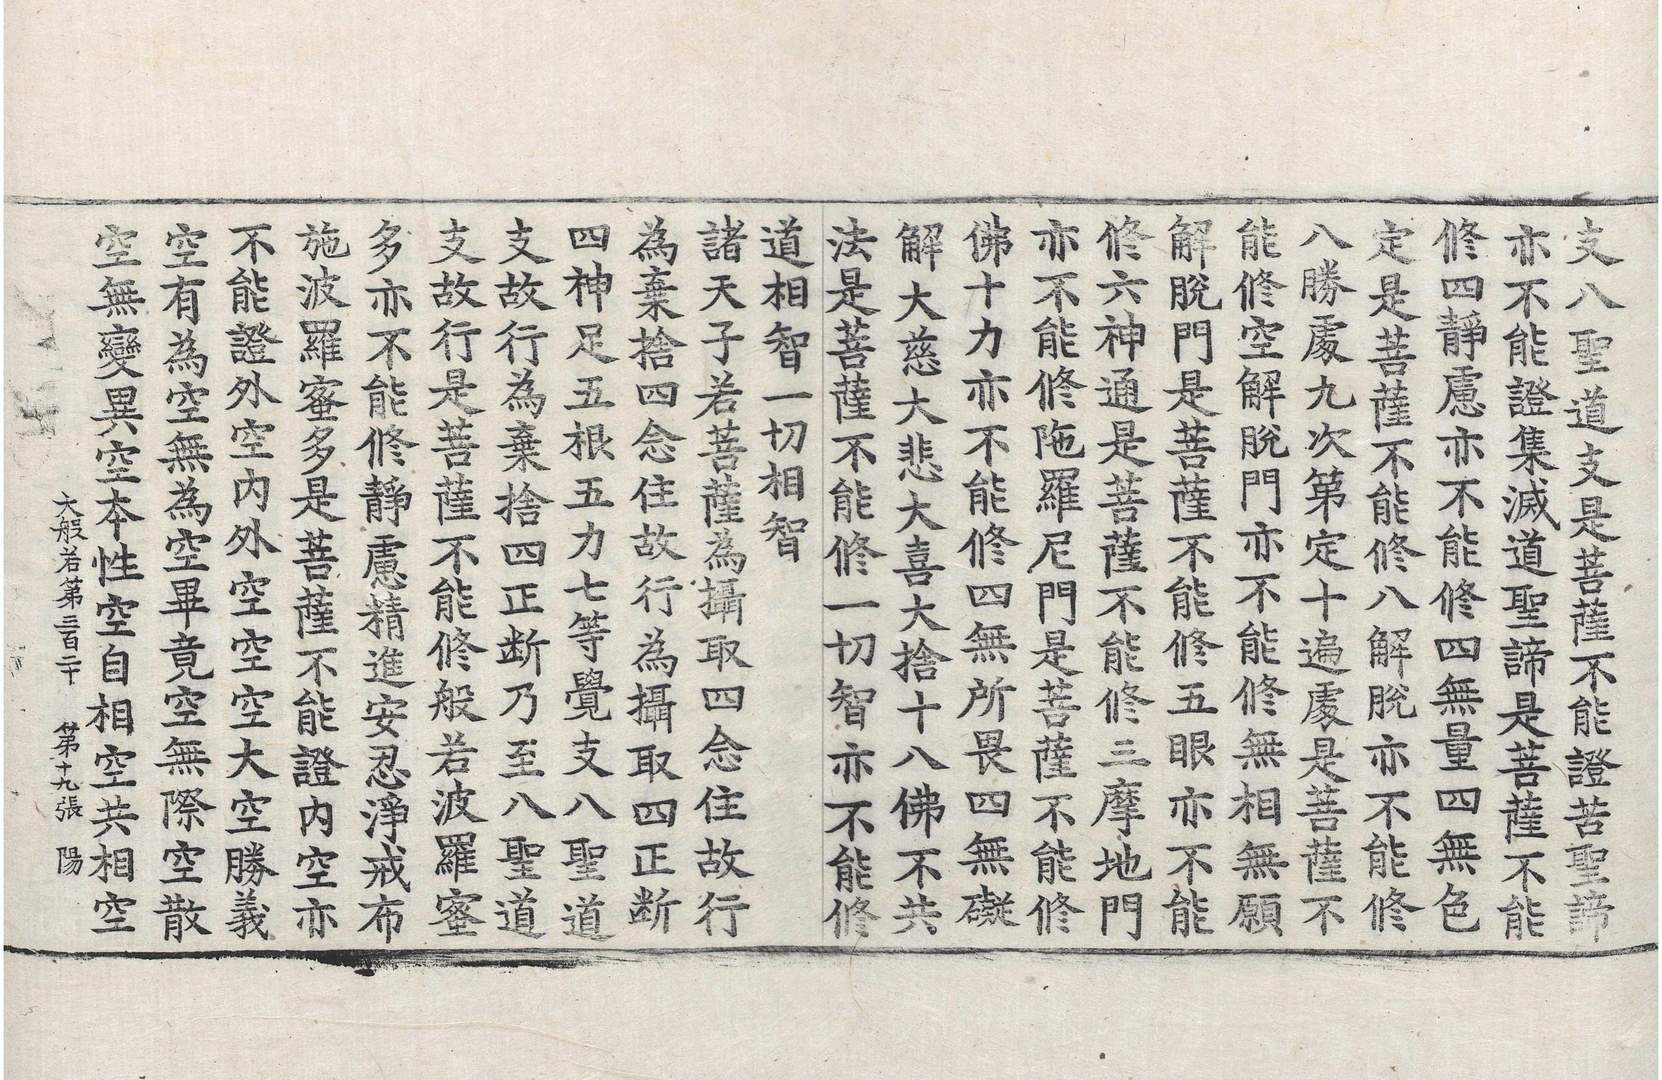 支八聖道支是菩薩不能證苦聖諦
亦不能證集滅道聖諦是菩薩不能
修四靜慮亦不能修四無量四無色
定是菩薩不能修八解脫亦不能修
八勝處九次第定十遍處是菩薩不
能修空解脫門亦不能修無相無願
解脫門是菩薩不能修五眼亦不能
修六神通是菩薩不能修三摩地門
亦不能修陁羅尼門是菩薩不能修
佛十力亦不能修四無所畏四無礙
解大慈大悲大喜大捨十八佛不共
法是菩薩不能修一切智亦不能修
道相智一切相智
諸天子若菩薩為攝取四念住故行
為棄捨四念住故行為攝取四正斷
四神足五根五力七等覺支八聖道
支故行為棄捨四正斷乃至八聖道
支故行是菩薩不能修般若波羅蜜
多亦不能修靜慮精進安忍淨戒布
施波羅蜜多是菩薩不能證內空亦
不能證外空內外空空空大空勝義
空有為空無為空畢竟空無際空散
空無變異空本性空自相空共相空
大般若第三百二十 第十九張 陽